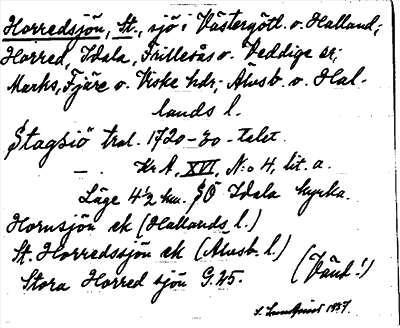 Horredsjön, St., sjö i Västergötl. o. Halland;
Horred, Idala, Frillesås o. Veddige sr;
Marks, Fjäre o. Viske hdr; Älvsb. o. Hal-
lands l.
Stagsiö tral. 1720-30-talet.
— . Kr A, XVI, N:o 4, lit. a.
Läge 4½ km. SÖ Idala kyrka.
Hornsjön ek (Hallands l.)
St. Horredssjön ek (Älvsb. l.)
Stora Horred sjön G. 25.
(Vänd!)
S. Lundquist 1937.